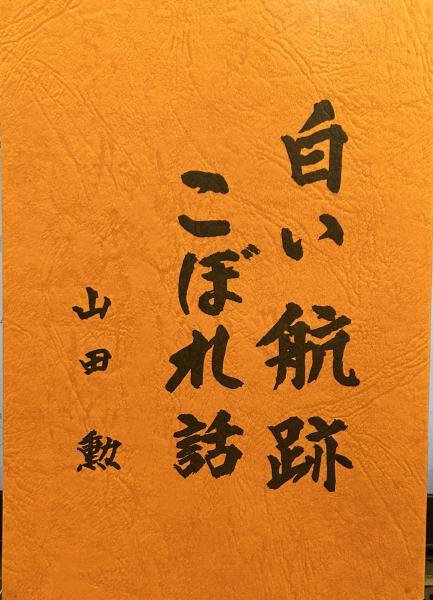 白い航跡
こぼれ話
山田勲